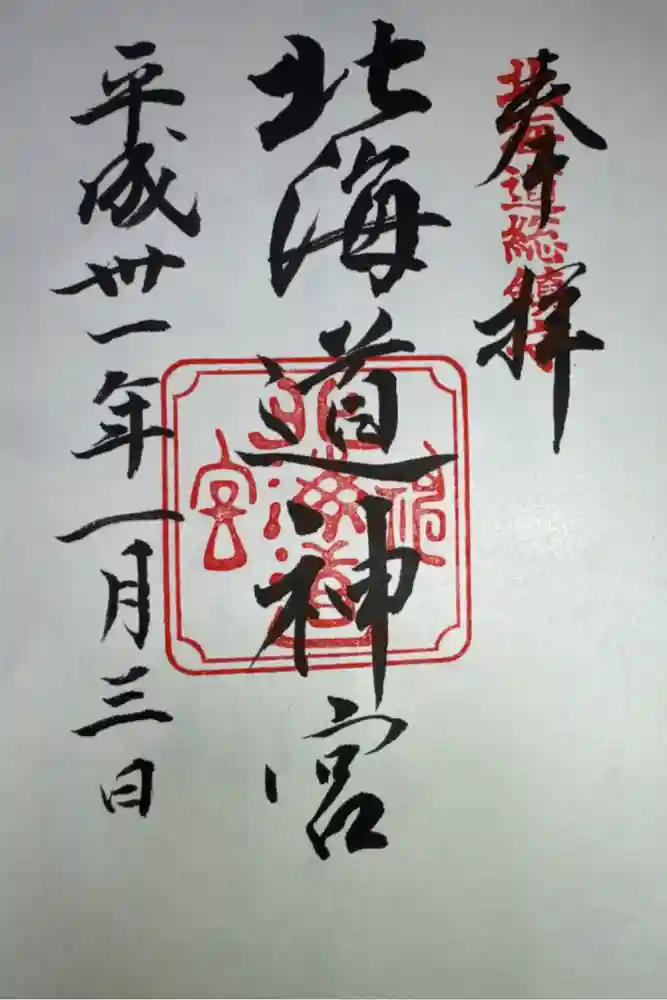 奉拝
北海道総鎮守
北海道神宮
北海道神宮
平成卅一年一月三日